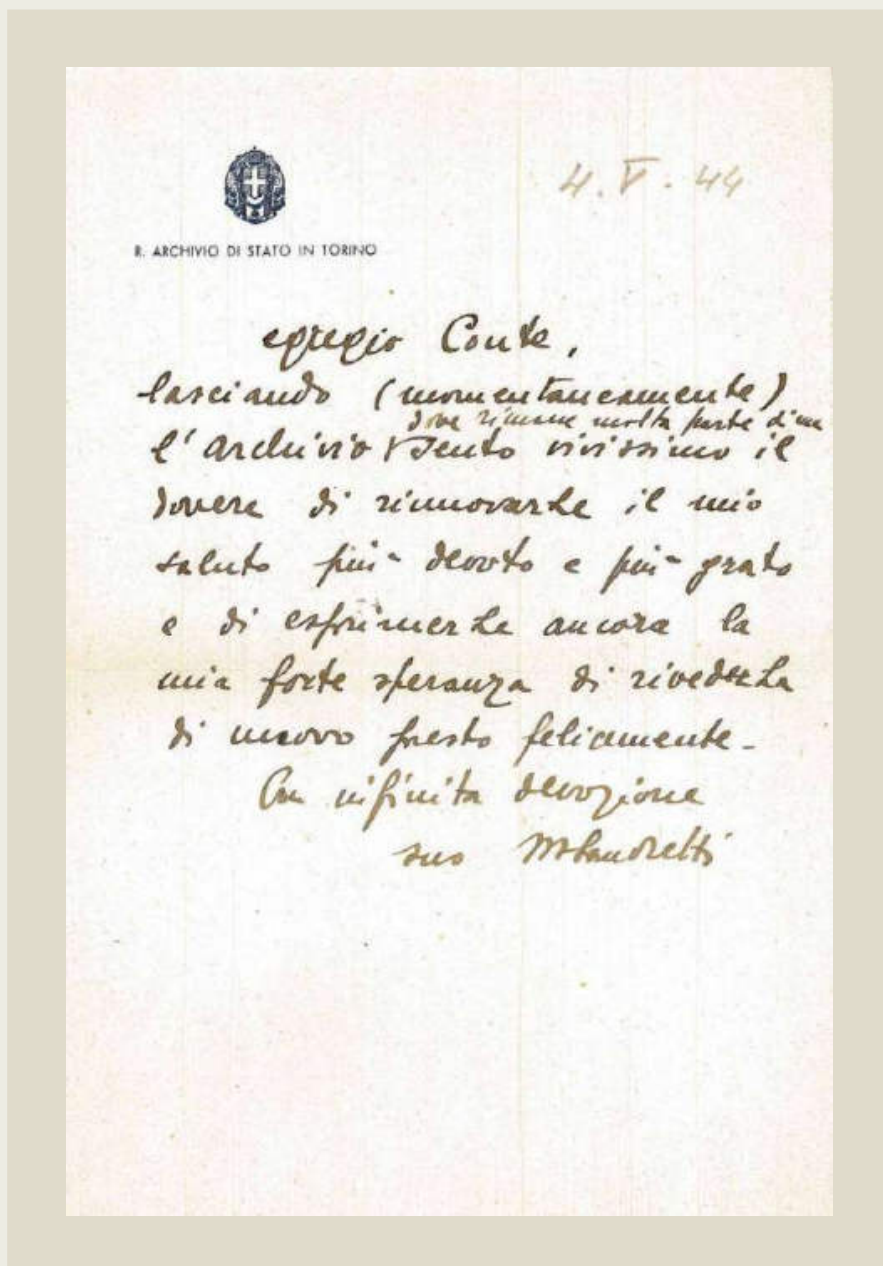 4. V. 44
R. ARCHIVIO DI STATO IN TORINO
egregio Conte,
lasciando (momentaneamente)
dove rimane molta parte di me
l'archivio sento vivissimo il
dovere di rinnovarLe il mio
saluto più devoto e più grato
e di esprimerLe ancora la
mia forte speranza di rivederLa
di nuovo presto felicemente.
Con infinita devozione
suo